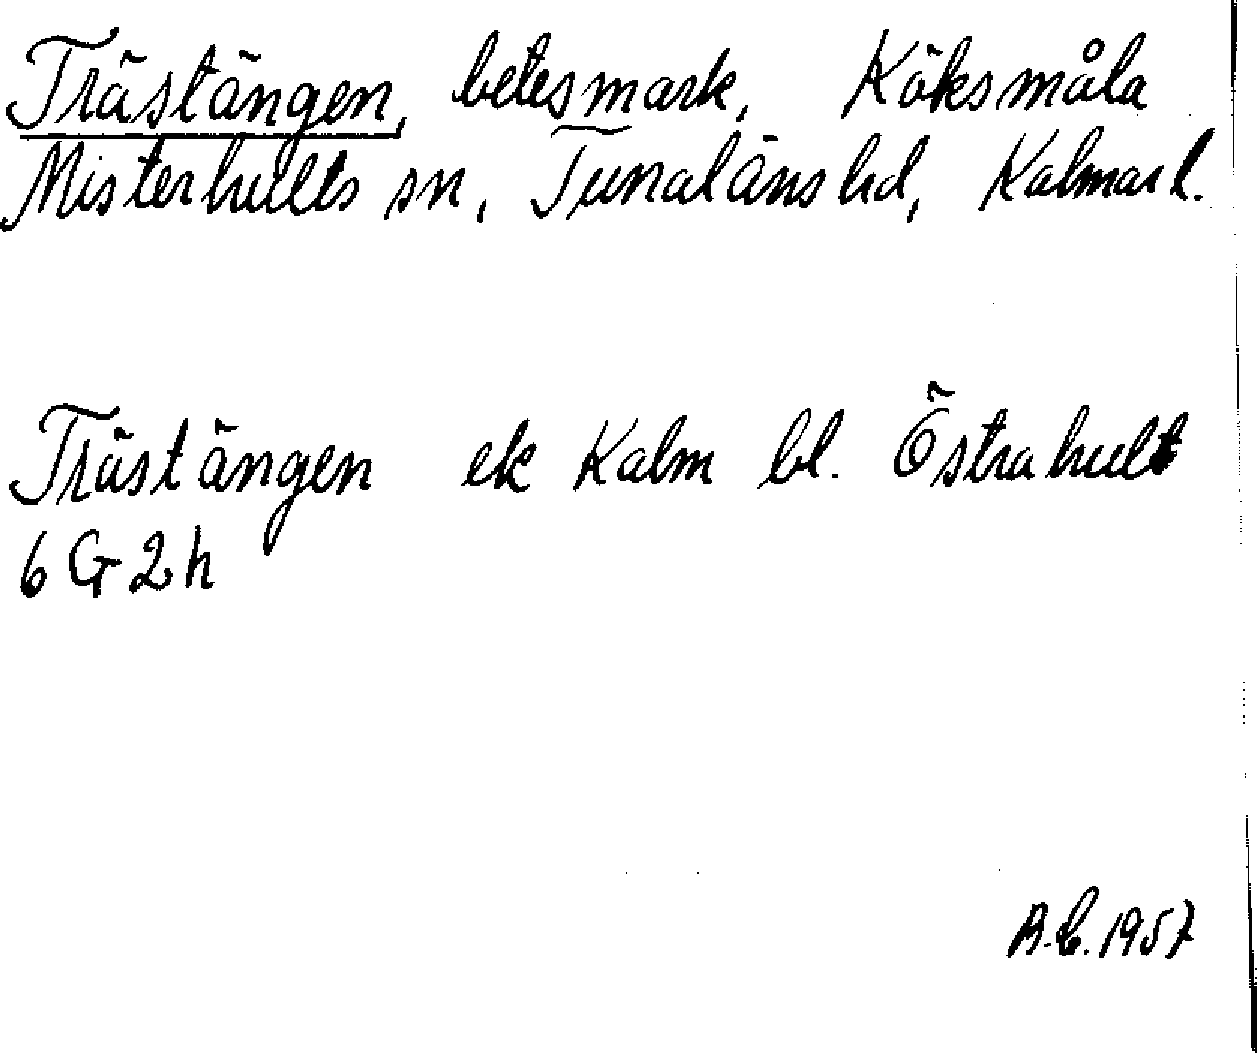 Trästängen, betesmark, Köksmåla
Misterhults sn, Tunaläns hd, Kalmar l.
Trästängen ek Kalm bl. Östrahult
6 G 2 h
1957